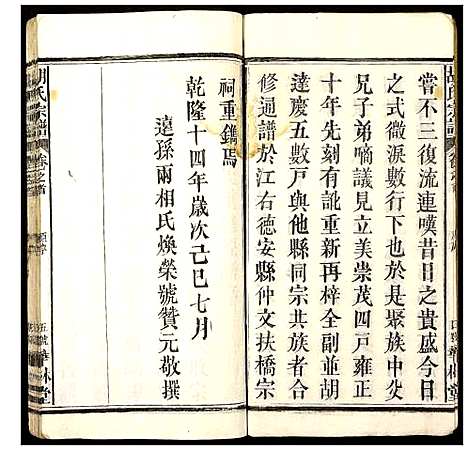 嘗不三復流連嘆昔日之貴盛今日
之式微淚數行下也於是聚族中英
兄子弟嘀議見立美崇茂四戶雍正
十年先刻有訛重新再梓全副並胡
達慶五數戶與他縣同宗共族者合
修通譜於江右德安縣仲文扶橋宗
祠重鐫焉
乾隆十四年歲次己巳七月
遠孫兩相氏煥榮號贊元敬撰
胡氏宗譜
卷之首
華林堂